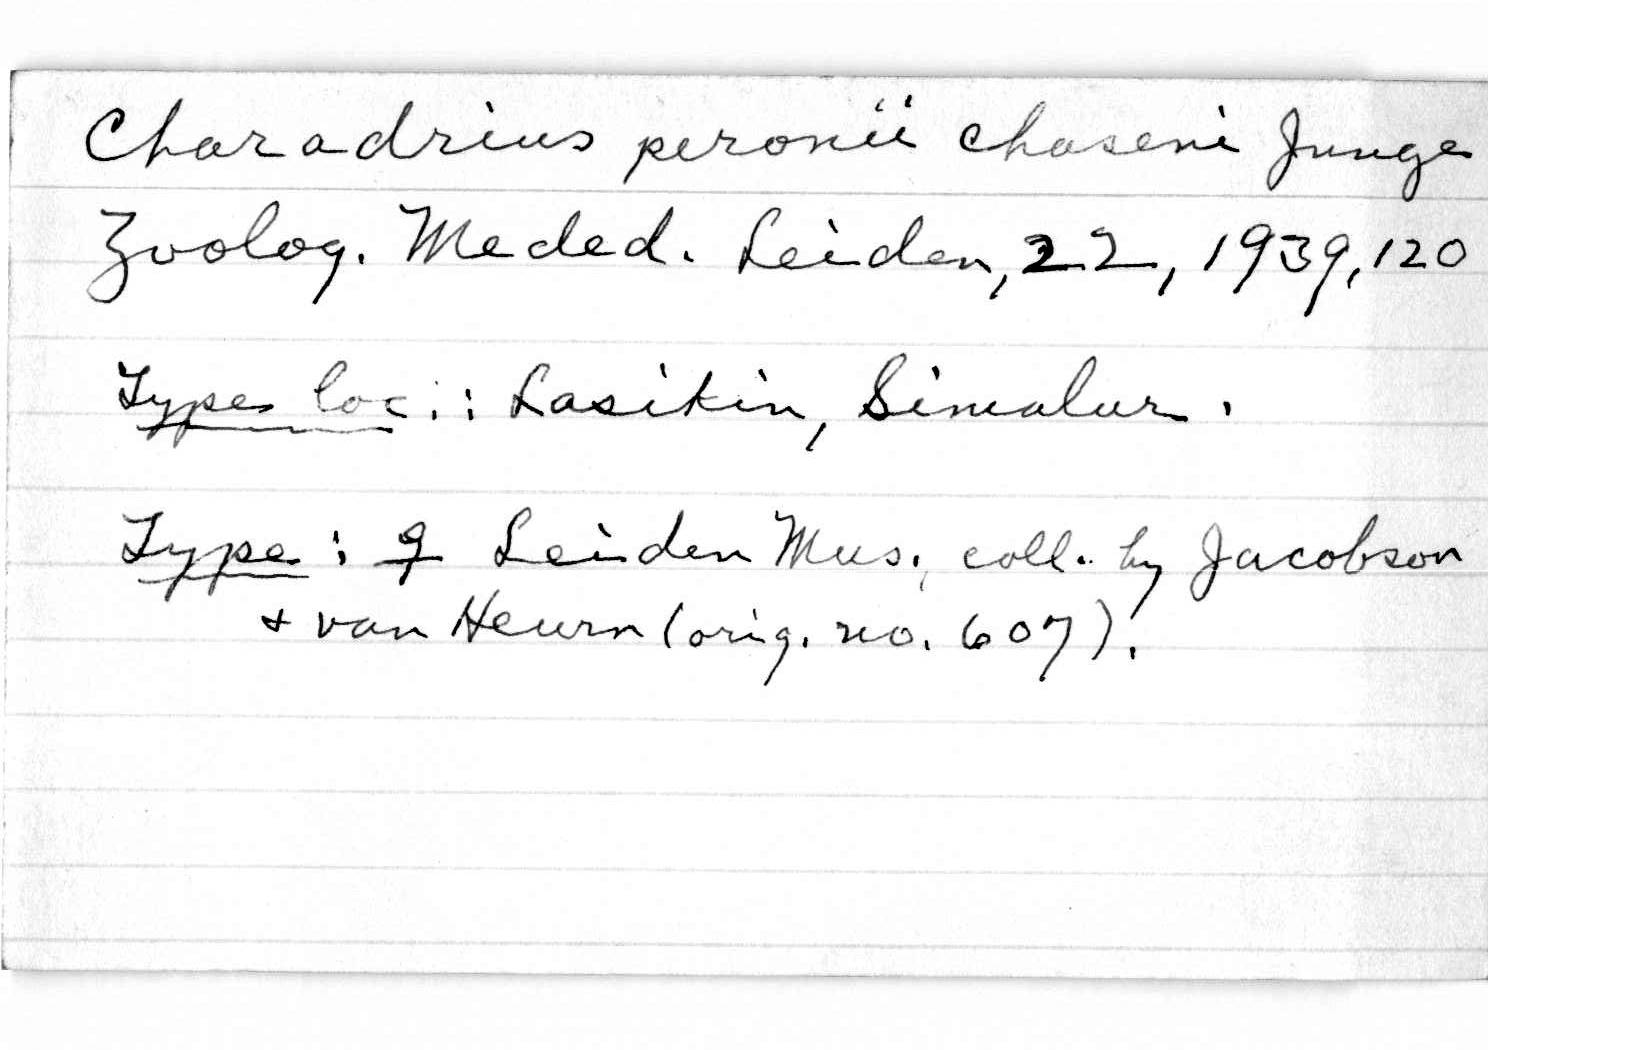 Charadrius peronii chaseni Junge
Zoolog. Meded. Leiden, 22, 1939, 120
Type loc.: Lasikin, Simalur.
Type: ♀ Leiden Mus., coll. by Jacobson
+ van Heurn (orig. no. 607).